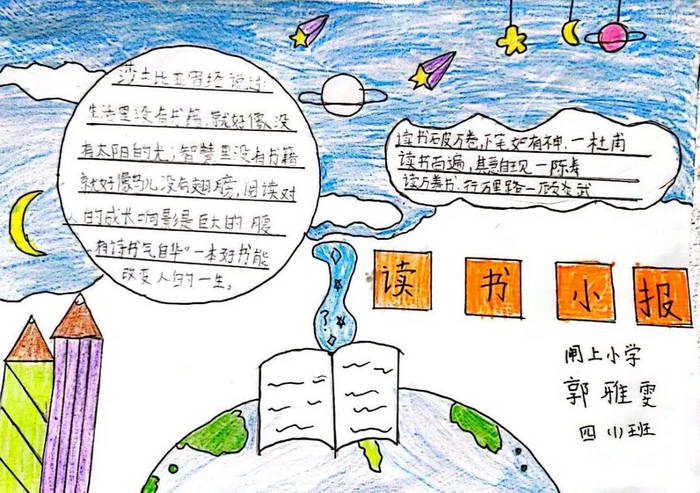 莎士比亚曾经说过:
生活里没有书籍,就好像没
有太阳的光;智慧里没有书籍
就好像鸟儿没有翅膀,阅读对
人的成长响影是巨大的 腹
有诗书气自华"一本好书能
改变人的一生。
读书破万卷,下笔如有神.一杜甫
读书百遍,其意自现一陈寿
读万卷书.行万里路一顾炎武
读 书 小 报
闸上小学
郭雅雯
四(1)班